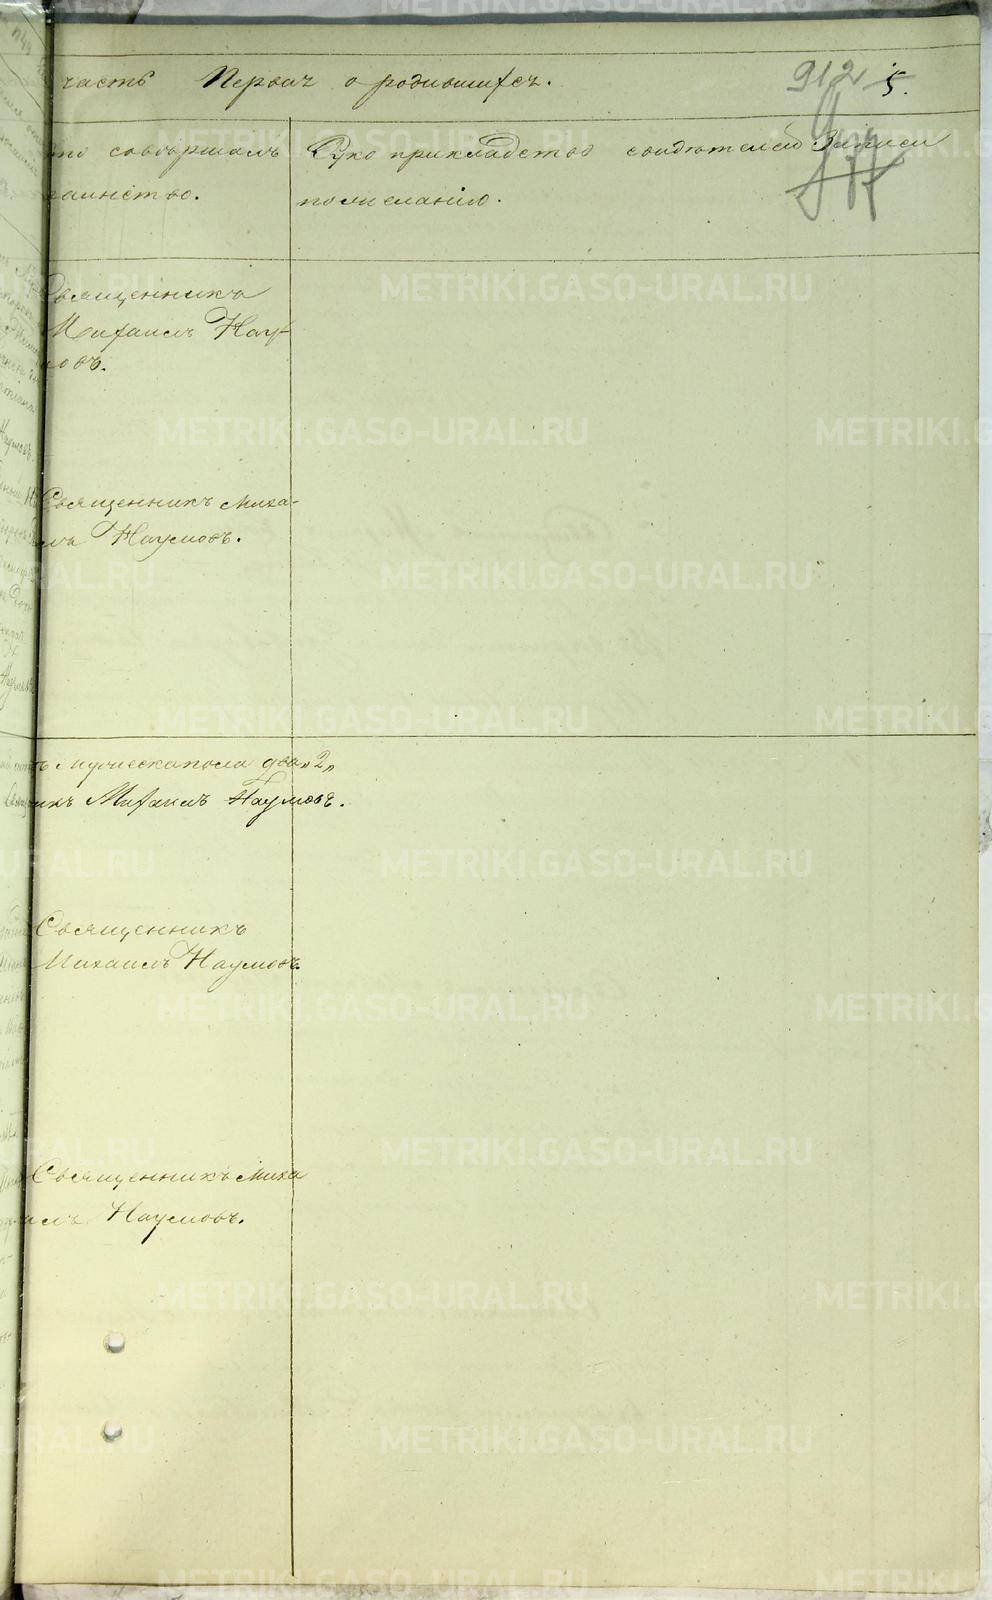 часть Первая о родившихся.
912 5.
то совершалъ
таинство.
Руко прикладство свидѣтелей Записи
по желанію.
Священникъ
Михаилъ Нау-
мовъ.
Священникъ Миха-
илъ Наумовъ.
ъ Мужескапола два „2„
икъ Михаилъ Наумовъ.
Священникъ
Михаилъ Наумовъ.
Священникъ Миха
илъ Наумовъ.
METRIKI.GASO-URAL.RU